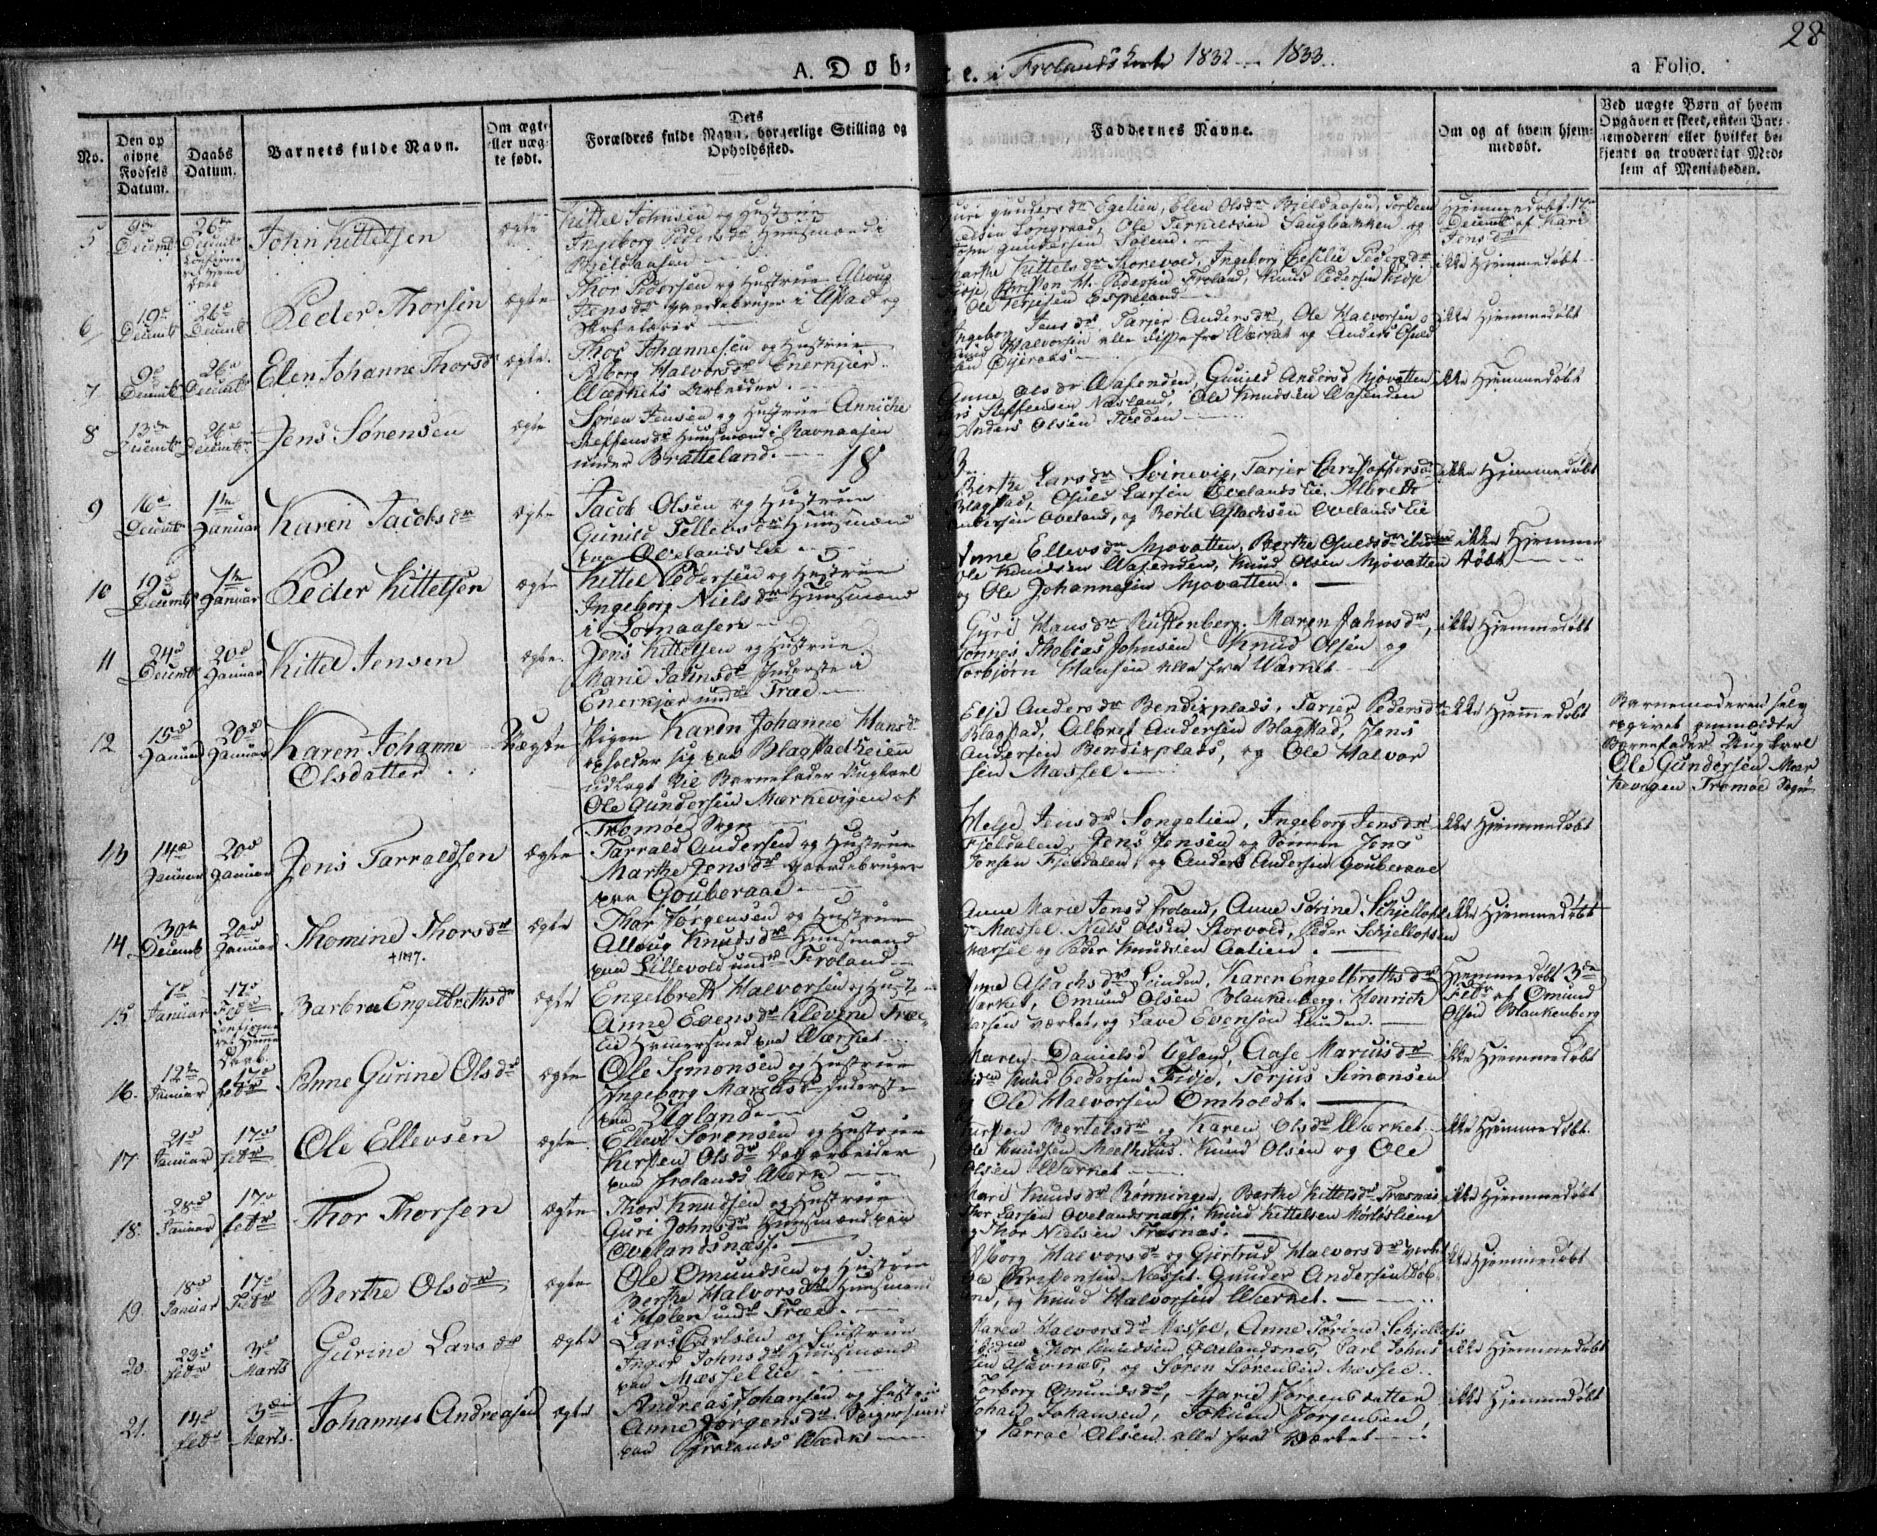 28
A. Døb- te. i Frolands Kirke 1832 - 1833.
a Folio.
No.
Den op
givne
Fødsels
Datum.
Daabs
Datum.
Barnets fulde Navn.
Om ægte
eller uæg-
te født.
Forældres fulde Navn, borgerlige Stilling og
Opholdssted.
Faddernes Navne.
Om og af hvem hjem-
medøbt.
Ved uægte Børn af hvem
Opgaven er skeet, enten Bar-
nemoderen eller hvilket be-
kjendt og troværdigt Med-
lem af Menigheden.
5
9de Decembr
26de Decembr
John Kittelsen
ægte
Kittel Johnsen og Hustrue
Ingeborg Peders dr Huusmænd i
Bjeldaasen
Guri Gunders dr Egelien, Elen Olsdr Bjeldaasen,
Longraad, Ole Terkeldsen Saugbakken og
John Gundersen
Hjemmedøbt 17de
Decembr af Kari
Jens dr
6
19de Decembr
26de Decembr
Peder Thorsen
ægte
Thor Pedersen og Hustrue Asloug
Jens dr Gaardebruger i
Marthe Kittels dr Storevold, Ingeborg Cesilie Peders dr
Pedersen Froland, Knud Pedersen Fidje
Ole Terjesen Espeland
ikke Hjemmedøbt
7
9de Decembr
26de Decembr
Elen Johanne Thorsdr
ægte.
Thor Johannesen og Hustrue
Asborg Halvors dr Enerkjær
Værkets Arbeider.
Ingeborg Jens dr, Tarjer Anders dr, Ole Halvorsen
Knud Halvorsen alle disse fra Værket og Anders
ikke Hjemmedøbt
8
13de Decembr
26de Decembr
Jens Sørensen
ægte
Søren Jensen og Hustrue Anniche
Steffens dr Huusmænd i Ravnaasen
under Bratteland.
18 33.
Anne Ols dr Vasenden, Gunild Andersd Mjovatten
Lars Steffensen Næsland, Ole Knudsen Vasenden
og Anders Olsen Tveden
ikke Hjemmedøbt
9
16de Decembr
1ste Januar
Karen Jacobsdr
ægte
Jacob Olsen og Hustrue
Gunild Tellefs dr Huusmænd
paa Ovelands Lie
Berthe Lars dr Svinevig, Tarjer Christoffersdr
Blagstad, Osuld Larsen Ovelands Lie, Albreth
Andersen Oveland, og Bertel Aslachsen Ovelands Lie
ikke Hjemmedøbt
10
19de Decembr
1ste Januar
Peder Kittelsen
ægte
Kittel Pedersen og Hustrue
Ingeborg Niels dr Huusmænd
i Lomaasen
Anne Ellevs dr Mjovatten, Berthe Osulds dr
Ole Knudsen Vasenden, Knud Olsen Mjovatten
og Ole Johannesen Mjovatten.
ikke Hjemme
døbt
11
24de Decembr
20de Januar
Kittel Jensen
ægte
Jens Kittelsen og Hustrue
Marie Jahns dr Inderste i
Enerkjær undr Træe
Gyri Hans dr Rustenberg, Maren Jahns dr,
Tønnes Thobias Johnsen Knud Olsen og
Torbjørn Hansen alle fra Værket
ikke Hjemmedøbt
12
15de Januar
20de Januar
Karen Johanne
Olsdatter
Uægte
Pigen Karen Johanne Hansdr
opholder sig paa Blagstadheien
udlagt til Barnefader Ungkarl
Ole Gundersen Mærkevigen af
Tromøe Sogn
Elsi Anders dr Bendixplads, Tarjer Pedersdr
Blagstad, Albret Andersen Blagstad, Jens
Andersen Bendixplads, og Ole Halvor
sen Massel
ikke Hjemmedøbt
Barnemoderen selv
opgivet ommeldte
Barnefader Ungkarl
Ole Gundersen Mær
kevigen Tromøe Sogn
13
14de Januar
20de Januar
Jens Tarraldsen
ægte
Tarrald Andersen og Hustrue
Marthe Jens dr Gaardebruger
paa Gouberaae
Helje Jens dr Songelien, Ingeborg Jens dr
Fjeldalen, Jens Jensen og Sønnen Jens
Torsen Fjeldalen, og Anders Andersen Gouberaae
ikke Hjemmedøbt
14
30te Decembr
20de Januar
Thomine Thors dr
ægte
Thor Jørgensen og Hustrue
Alloug Knuds dr Huusmænd
paa Lillevold undr Froland
Anne Marie Jensd Froland, Anne Torine Schjellofs
Mæssel, Niels Olsen Storvold, Peder Schjellofsen
Massel og Peder Knudsen Aalien.
ikke Hjemmedøbt
15
7de Januar
17de Febr
Barbroe Engelbrethsdr
ægte
Engelbreth Halvorsen og Hustrue
Anne Evens dr Klevene Træe
Lie Hammersmed paa Værket
Anne Aslachs dr Linden, Karen Engelbrethsdr
Værket, Omund Olsen Blankenberg, Henrich
Larsen Værket, og Lave Evensen Lunden.
Hjemmedøbt 3de
Febr af Omund
Olsen Blankenberg
16.
12te Januar
17de Febr
Anne Gurine Olsdr
ægte
Ole Simonsen og Hustrue
Ingeborg Marcus dr Inderste
paa Ugland
Maren Danielsd Ugland, Aase Marcus dr
Knud Pedersen Fidje, Terjus Simonsen
og Ole Halvorsen Omholdt.
ikke Hjemmedøbt
17.
21de Januar
17de Febr
Ole Ellevsen
ægte
Ellev Sørensen og Hustrue
Kersten Ols dr Arbeider
paa Frolands Værk
Kirsten Bertels dr og Karen Ols dr Værket
Ole Knudsen Knud Olsen og Ole
Olsen Værket
ikke Hjemmedøbt.
18.
28de Januar
17de Febr
Thor Thorsen
ægte
Thor Knudsen og Hustrue
Guri Johns dr Huusmænd paa
Ovelandsnæss.
Mari Knuds dr Rønningen, Berthe Kittels dr Træsnæs
Thor Larsen Ovelandsnæs, Knud Kittelsen
og Thor Nielsen Træsnæs.
ikke Hjemmedøbt
19.
18de Januar
17de Febr
Berthe Olsdr
ægte
Ole Omundsen og Hustrue
Berthe Halvors dr Huusmænd
i Holen undr Træe.
Asborg Halvors dr og Gjertrud Halvors dr Værket
Ole Christensen Næsset, Gunder Andersen
og Knud Halvorsen Værket.
ikke Hjemmedøbt
20.
23de Febr
3de Marts
Gurine Lars dr
ægte
Lars Carlsen og Hustrue
Inger Johns dr Huusmænd
paa Mæssel Lie
Maren Halvors dr Messel, Anne Torine Schjellofs
Thor Knudsen Ovelandsnæs, Carl Johns
og Søren Sørensen Messel.
ikke Hjemmedøbt
21.
14de Febr
3die Marts
Johannes Andreasen
ægte
Andreas Johansen og Hustrue
Anne Jørgens dr
paa Frolands Værk
Torborg Omunds dr, Marie Jørgensdatter
Johan Johansen, Jokum Jørgensen,
og Tarral Olsen alle fra Værket
ikke Hjemmedøbt